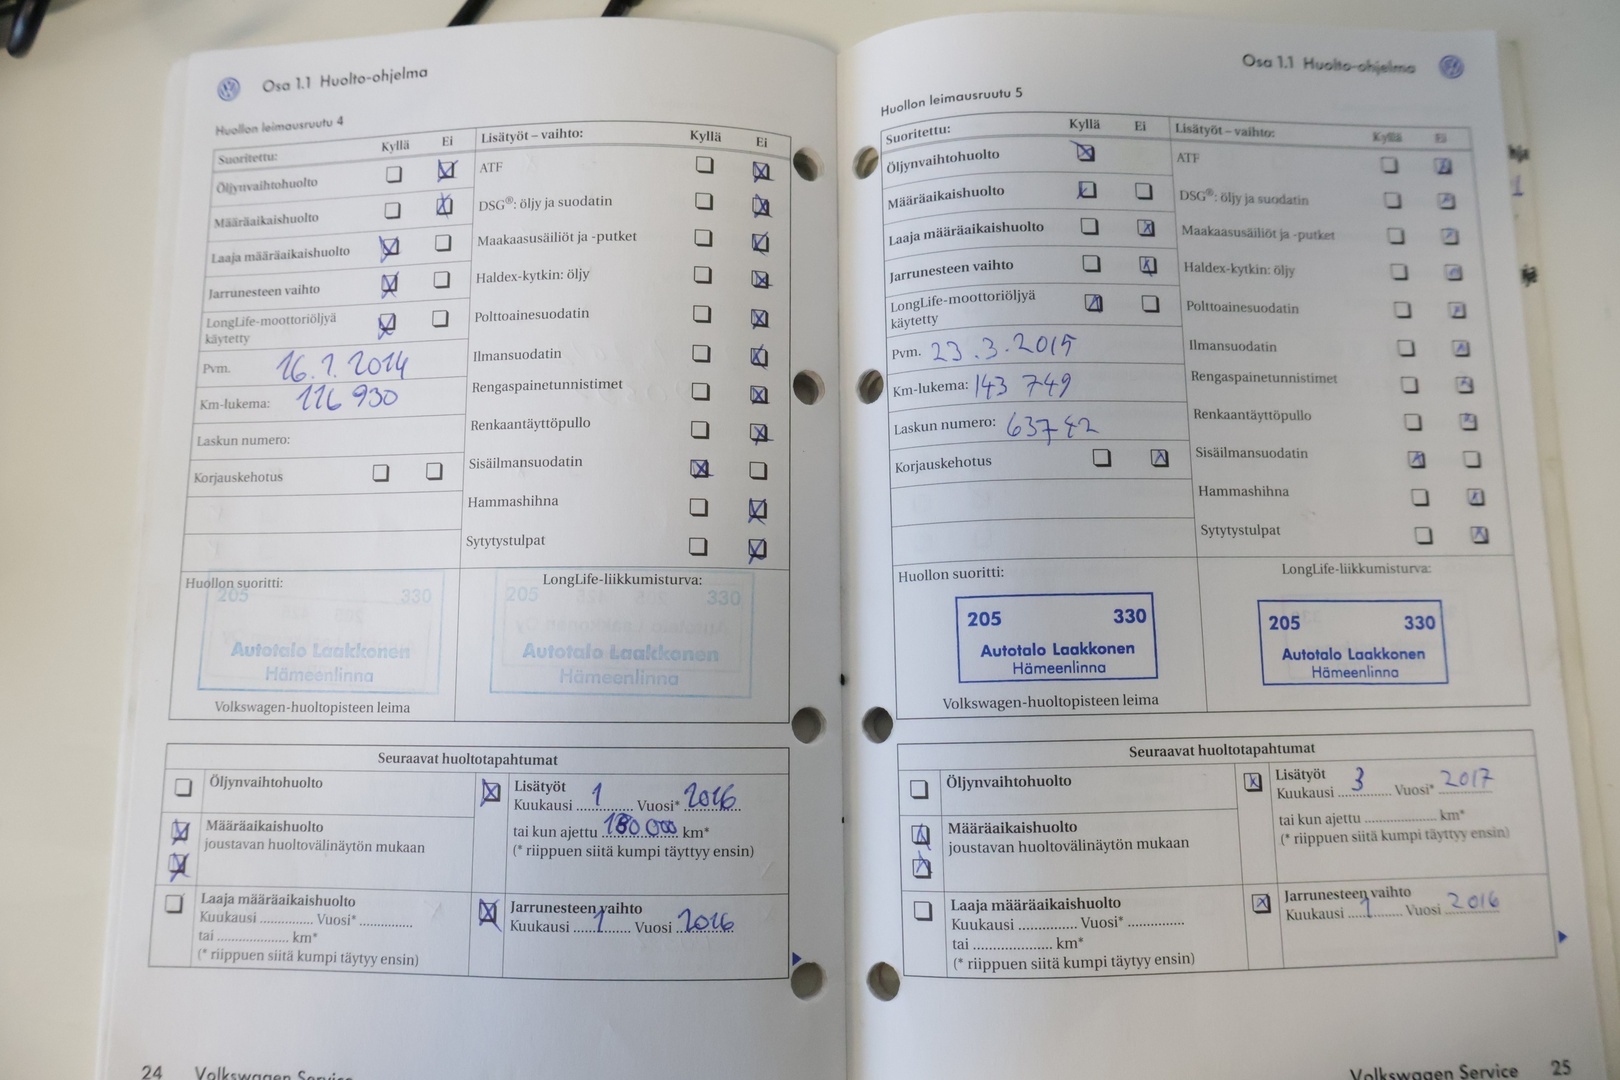 Osa 1.1 Huolto-ohjelma
Huollon leimausruutu 4
Suoritettu: Kyllä Ei
Öljynvaihtohuolto
Määräaikaishuolto
Laaja määräaikaishuolto
Jarrunesteen vaihto
LongLife-moottoriöljyä
käytetty
Pvm. 16.1.2014
Km-lukema: 116 930
Laskun numero:
Korjauskehotus
Lisätyöt – vaihto: Kyllä Ei
ATF
DSG®: öljy ja suodatin
Maakaasusäiliöt ja -putket
Haldex-kytkin: öljy
Polttoainesuodatin
Ilmansuodatin
Rengaspainetunnistimet
Renkaantäyttöpullo
Sisäilmansuodatin
Hammashihna
Sytytystulpat
Huollon suoritti:
205 330
Autotalo Laakkonen
Hämeenlinna
Volkswagen-huoltopisteen leima
LongLife-liikkumisturva:
205 330
Autotalo Laakkonen
Hämeenlinna
Seuraavat huoltotapahtumat
Öljynvaihtohuolto
Määräaikaishuolto
joustavan huoltovälinäytön mukaan
Laaja määräaikaishuolto
Kuukausi .............. Vuosi* ..............
tai .................... km*
(* riippuen siitä kumpi täytyy ensin)
Lisätyöt
Kuukausi 1 Vuosi* 2016
tai kun ajettu 180 000 km*
(* riippuen siitä kumpi täyttyy ensin)
Jarrunesteen vaihto
Kuukausi 1 Vuosi 2016
24 Volkswagen Service
Osa 1.1 Huolto-ohjelma
Huollon leimausruutu 5
Suoritettu: Kyllä Ei
Öljynvaihtohuolto
Määräaikaishuolto
Laaja määräaikaishuolto
Jarrunesteen vaihto
LongLife-moottoriöljyä
käytetty
Pvm. 23.3.2015
Km-lukema: 143 749
Laskun numero: 63742
Korjauskehotus
Lisätyöt – vaihto: Kyllä Ei
ATF
DSG®: öljy ja suodatin
Maakaasusäiliöt ja -putket
Haldex-kytkin: öljy
Polttoainesuodatin
Ilmansuodatin
Rengaspainetunnistimet
Renkaantäyttöpullo
Sisäilmansuodatin
Hammashihna
Sytytystulpat
Huollon suoritti:
205 330
Autotalo Laakkonen
Hämeenlinna
Volkswagen-huoltopisteen leima
LongLife-liikkumisturva:
205 330
Autotalo Laakkonen
Hämeenlinna
Seuraavat huoltotapahtumat
Öljynvaihtohuolto
Määräaikaishuolto
joustavan huoltovälinäytön mukaan
Laaja määräaikaishuolto
Kuukausi .................. Vuosi* ...............
tai ..................... km*
(* riippuen siitä kumpi täytyy ensin)
Lisätyöt
Kuukausi 3 Vuosi* 2017
tai kun ajettu ................... km*
(* riippuen siitä kumpi täyttyy ensin)
Jarrunesteen vaihto
Kuukausi 1 Vuosi 2016
Volkswagen Service 25